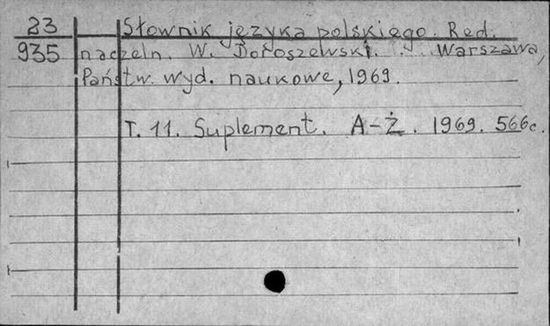 23 Słownik języka polskiego. Red.
935 naczeln. W. Doroszewski. Warszawa,
Państw. wyd. naukowe, 1969.
T. 11. Suplement. A-Ż. 1969. 566c.